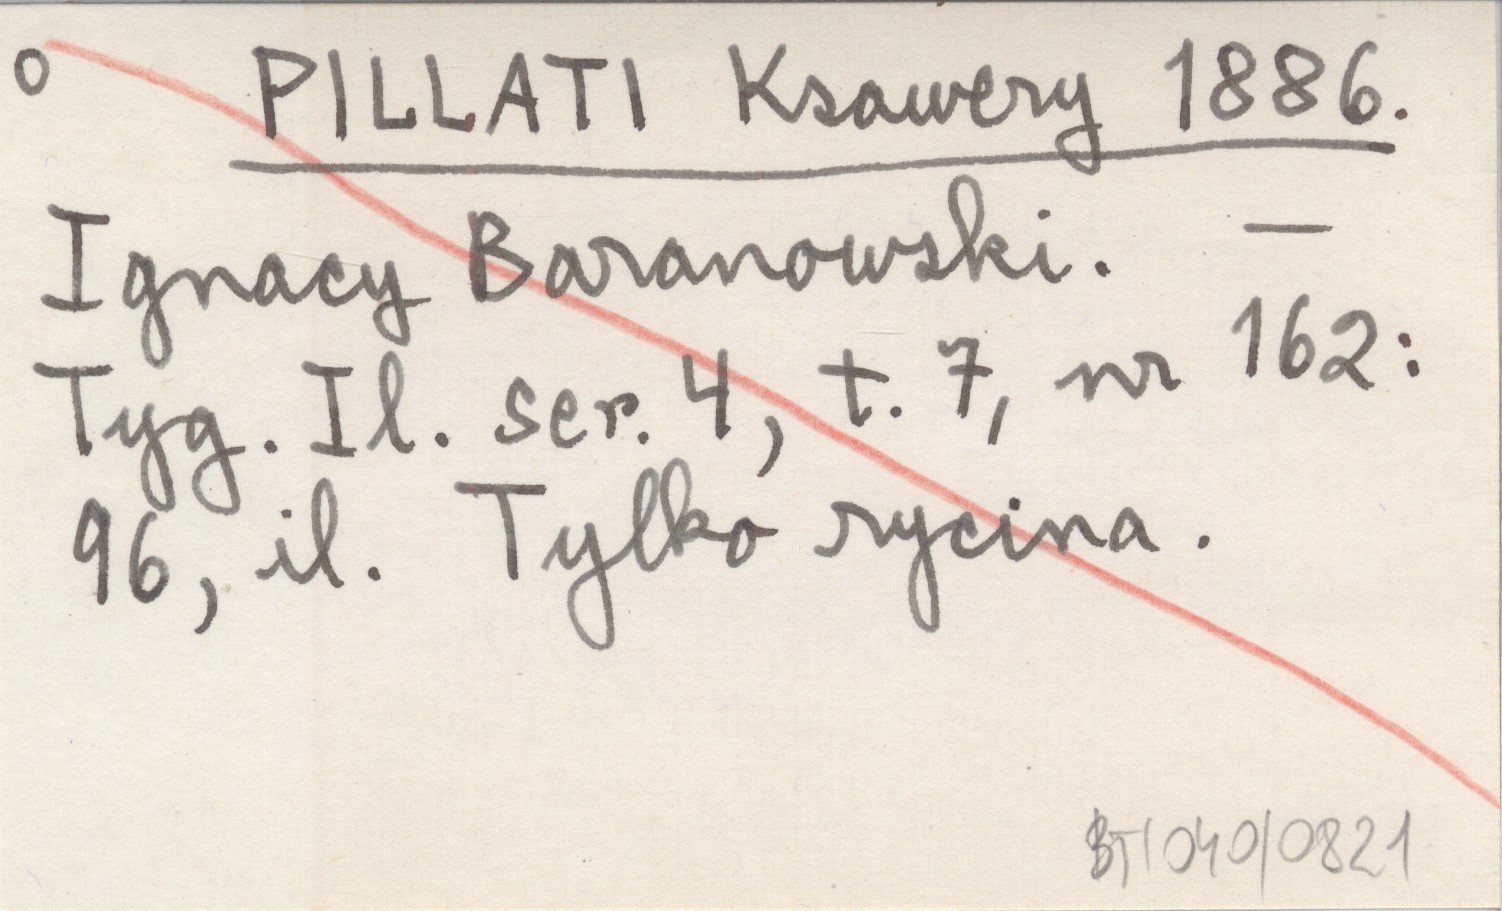 o PILLATI Ksawery 1886.
Ignacy Baranowski. —
Tyg. Il. ser. 4, t. 7, nr 162:
96, il. Tylko rycina.
BT/040/0821